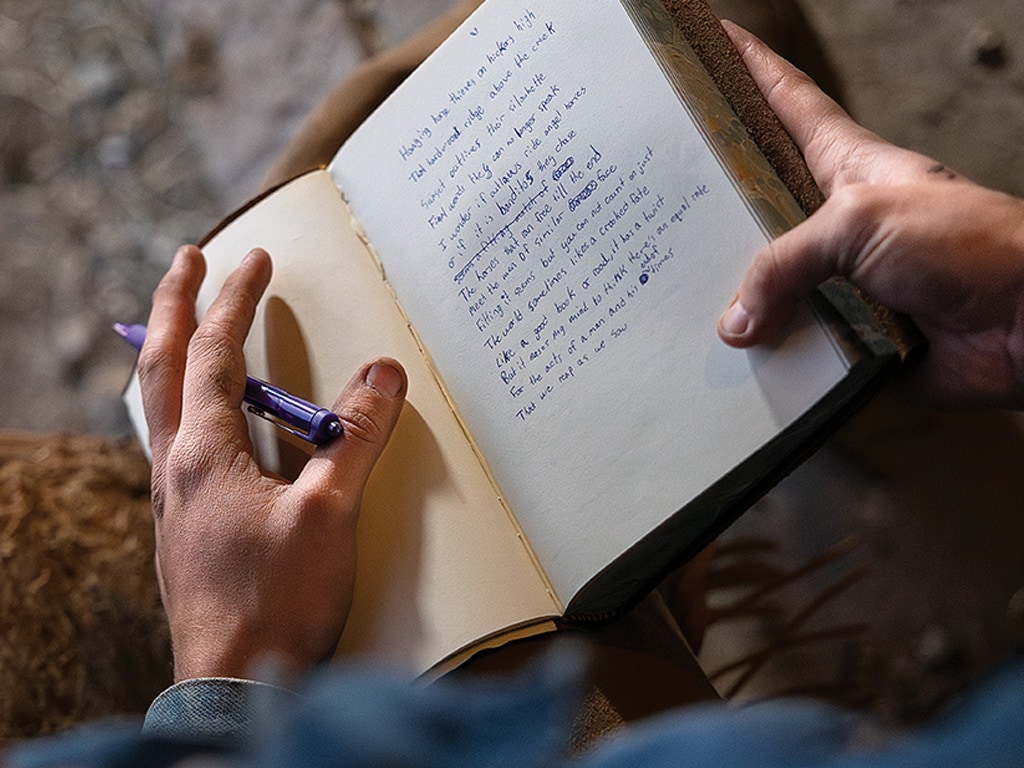 Hanging horse thieves on hickory high
That hardwood ridge above the creek
Sunset outlines their silouhette
Foul words they can no longer speak
I wonder if outlaws ride angel horses
or if it is bandits they chase
The horses that ran free till the end
meet the men of similar face
Fitting it seems but you can not count on just
The world sometimes likes a crooked fate
Like a good book or road, it has a twist
But it eases my mind to think there's an equal rate
For the acts of a man and his times
That we reap as we sow